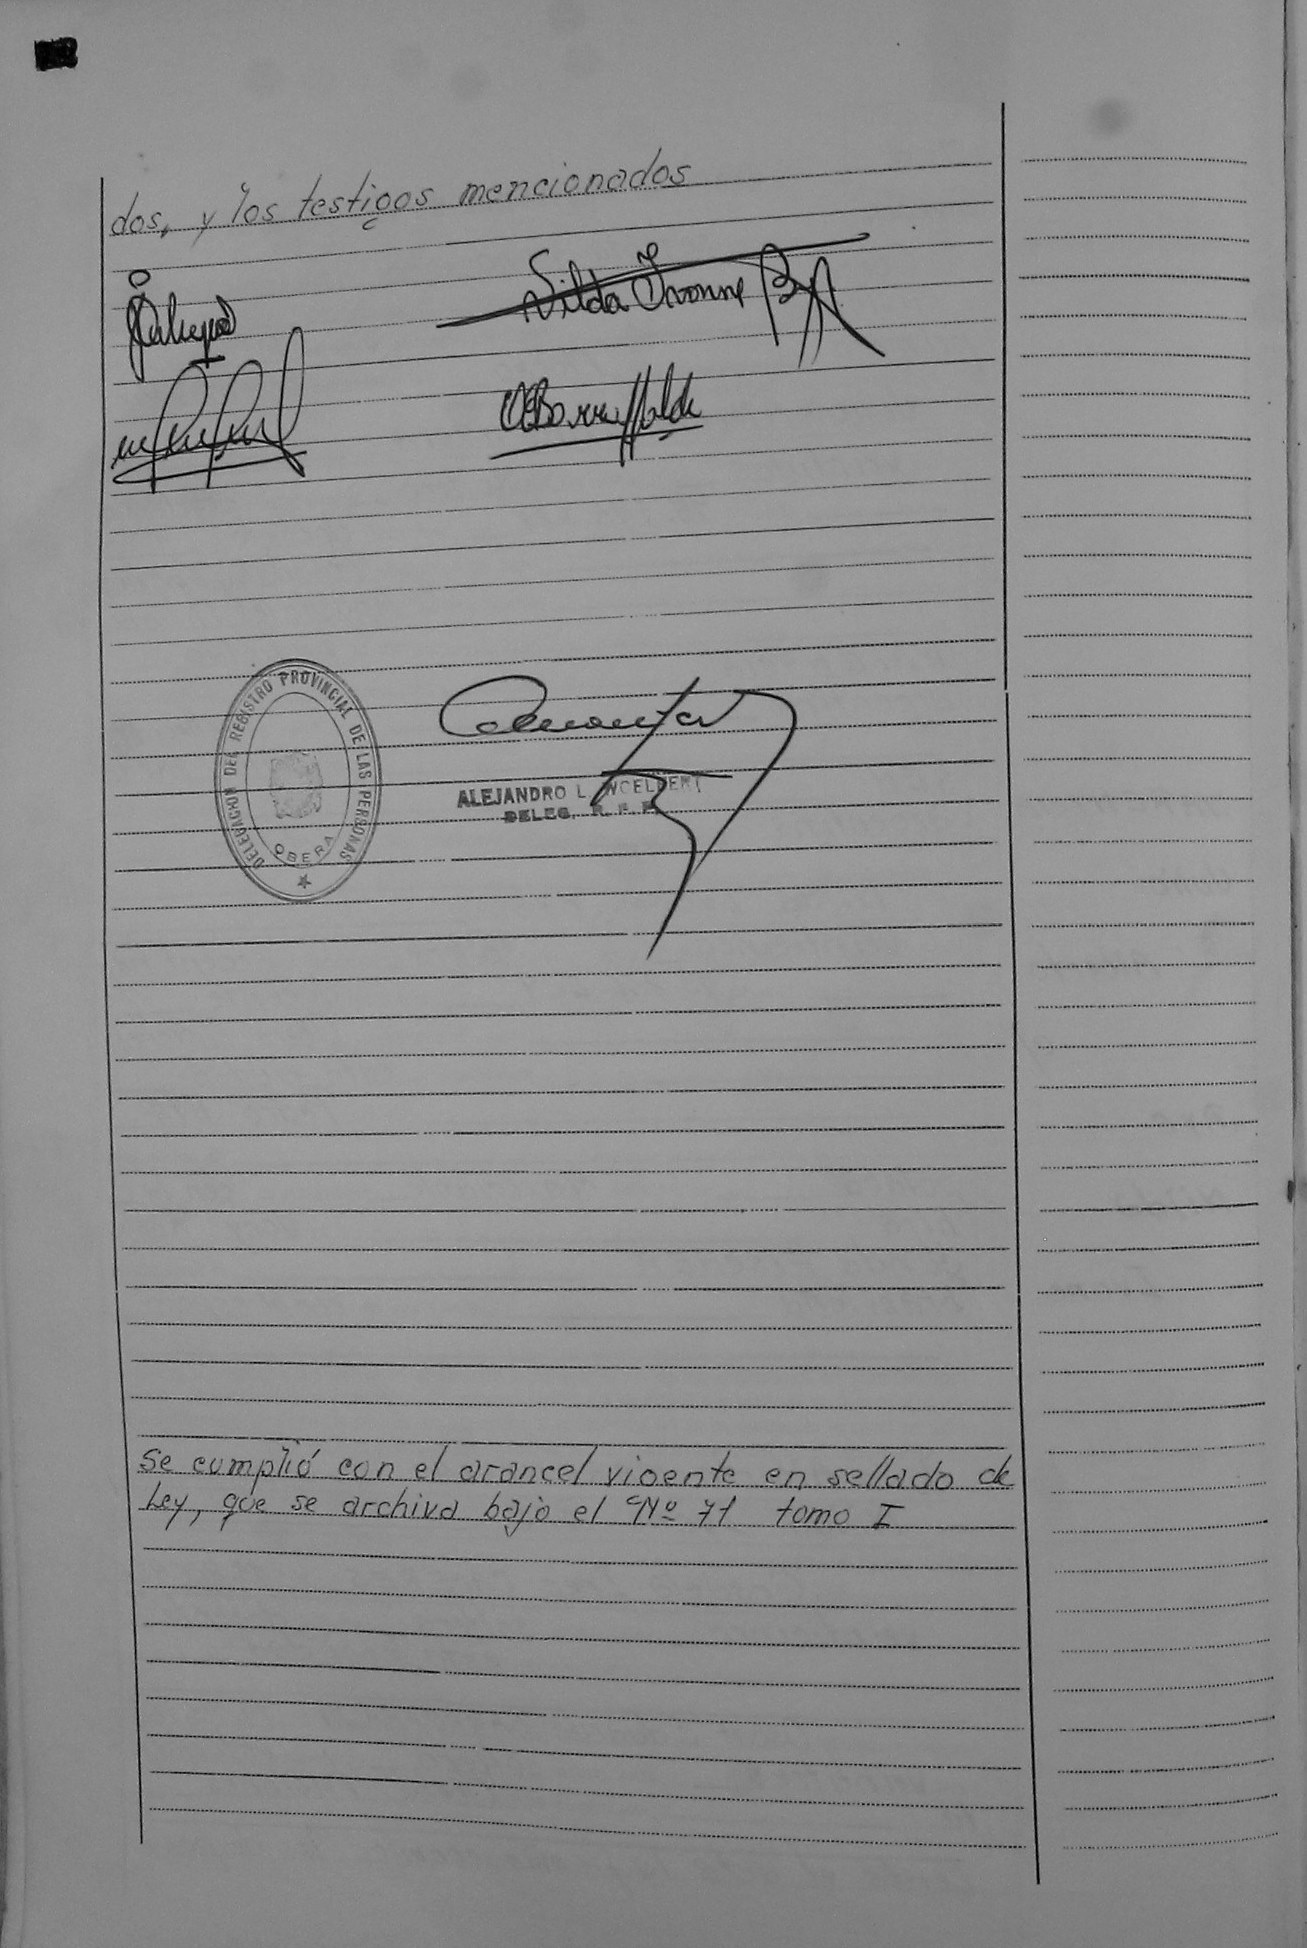 dos, y los testigos mencionados
Nilda Ivonne
DELEGACION DEL REGISTRO PROVINCIAL DE LAS PERSONAS
OBERA
ALEJANDRO L.
DELEG. R. P. P.
Se cumplió con el arancel vigente en sellado de
Ley, que se archiva bajo el Nº 71 tomo I